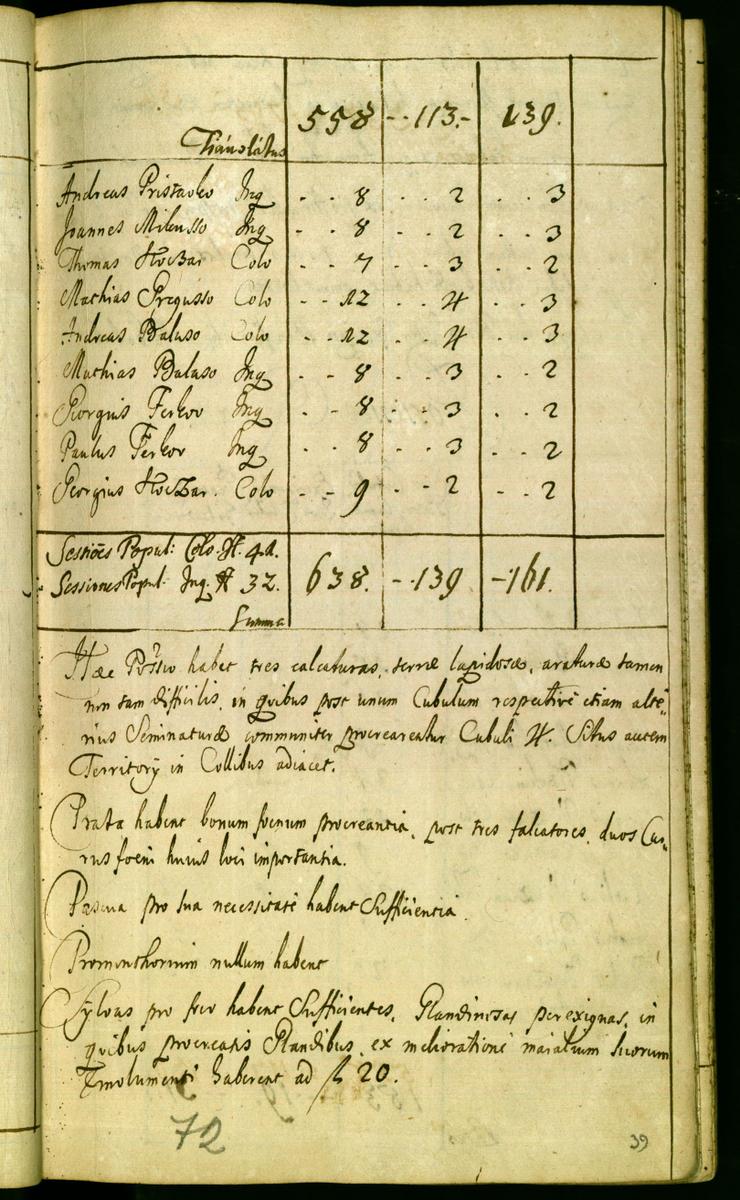 Translatus 558 - - 113. - 139.
Andreas Pristavko Inq - - 8 - - 2 - - 3
Joannes Milusso Inq - - 8 - - 2 - - 3
Thomas Kočzar Colo - - 7 - - 3 - - 2
Mathias Pregusso Colo - - 12 - - 4 - - 3
Andreas Balaso Colo - - 12 - - 4 - - 3
Mathias Balaso Inq - - 8 - - 3 - - 2
Georgius Ferkov Inq - - 8 - - 3 - - 2
Paulus Ferkov Inq - - 8 - - 3 - - 2
Georgius Kočzar. Colo - - 9 - - 2 - - 2
Sessiões Popul: Colo. 41.
Sessiones Popul: Inq. 32. 638. - - 139 - 161.
Summa
Hæc Possio habet tres calcaturas, terræ lapidosæ, araturæ tamen
non tam difficilis, in quibus post unum Cubulum respective etiam alte-
rius Seminaturæ communiter procreareatur Cubuli 4. Situs autem
Territorÿ in Collibus adiacet.
Prata habent bonum foenum procreantia, post tres falcatores, duos Cur-
rus foeni huius loci importantia.
Pascua pro sua necessitate habent Sufficientia.
Promonthorium nullum habent
Sylvas pro foco habent Sufficientes, Glandinosas perexiguas, in
quibus procreatis Glandibus, ex melioratione maialium suorum
Emolumenti haberent ad fl 20.
72
39